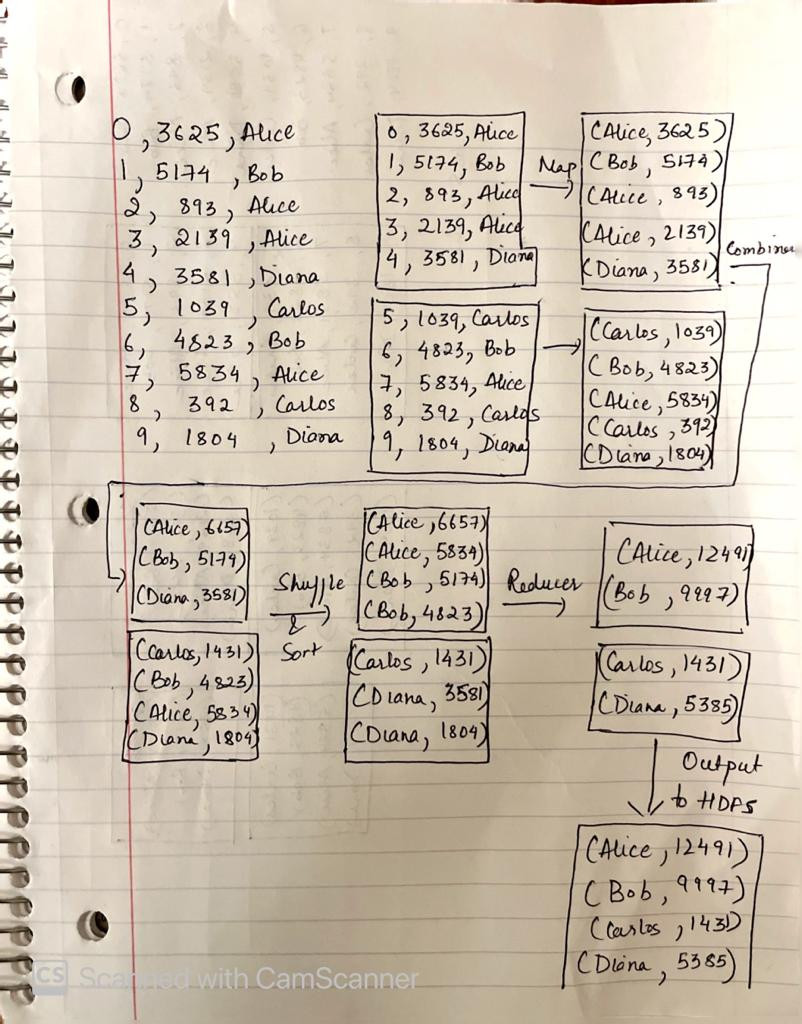 0, 3625, Alice
1, 5174, Bob
2, 893, Alice
3, 2139, Alice
4, 3581, Diana
5, 1039, Carlos
6, 4823, Bob
7, 5834, Alice
8, 392, Carlos
9, 1804, Diana
0, 3625, Alice
1, 5174, Bob
2, 893, Alice
3, 2139, Alice
4, 3581, Diana
5, 1039, Carlos
6, 4823, Bob
7, 5834, Alice
8, 392, Carlos
9, 1804, Diana
Map
(Alice, 3625)
(Bob, 5174)
(Alice, 893)
(Alice, 2139)
(Diana, 3581)
(Carlos, 1039)
(Bob, 4823)
(Alice, 5834)
(Carlos, 392)
(Diana, 1804)
Combiner
(Alice, 6657)
(Bob, 5174)
(Diana, 3581)
(Carlos, 1431)
(Bob, 4823)
(Alice, 5834)
(Diana, 1804)
Shuffle
&
Sort
(Alice, 6657)
(Alice, 5834)
(Bob, 5174)
(Bob, 4823)
(Carlos, 1431)
(Diana, 3581)
(Diana, 1804)
Reducer
(Alice, 12491)
(Bob, 9997)
(Carlos, 1431)
(Diana, 5385)
Output
to HDFS
(Alice, 12491)
(Bob, 9997)
(Carlos, 1431)
(Diana, 5385)
CS Scanned with CamScanner